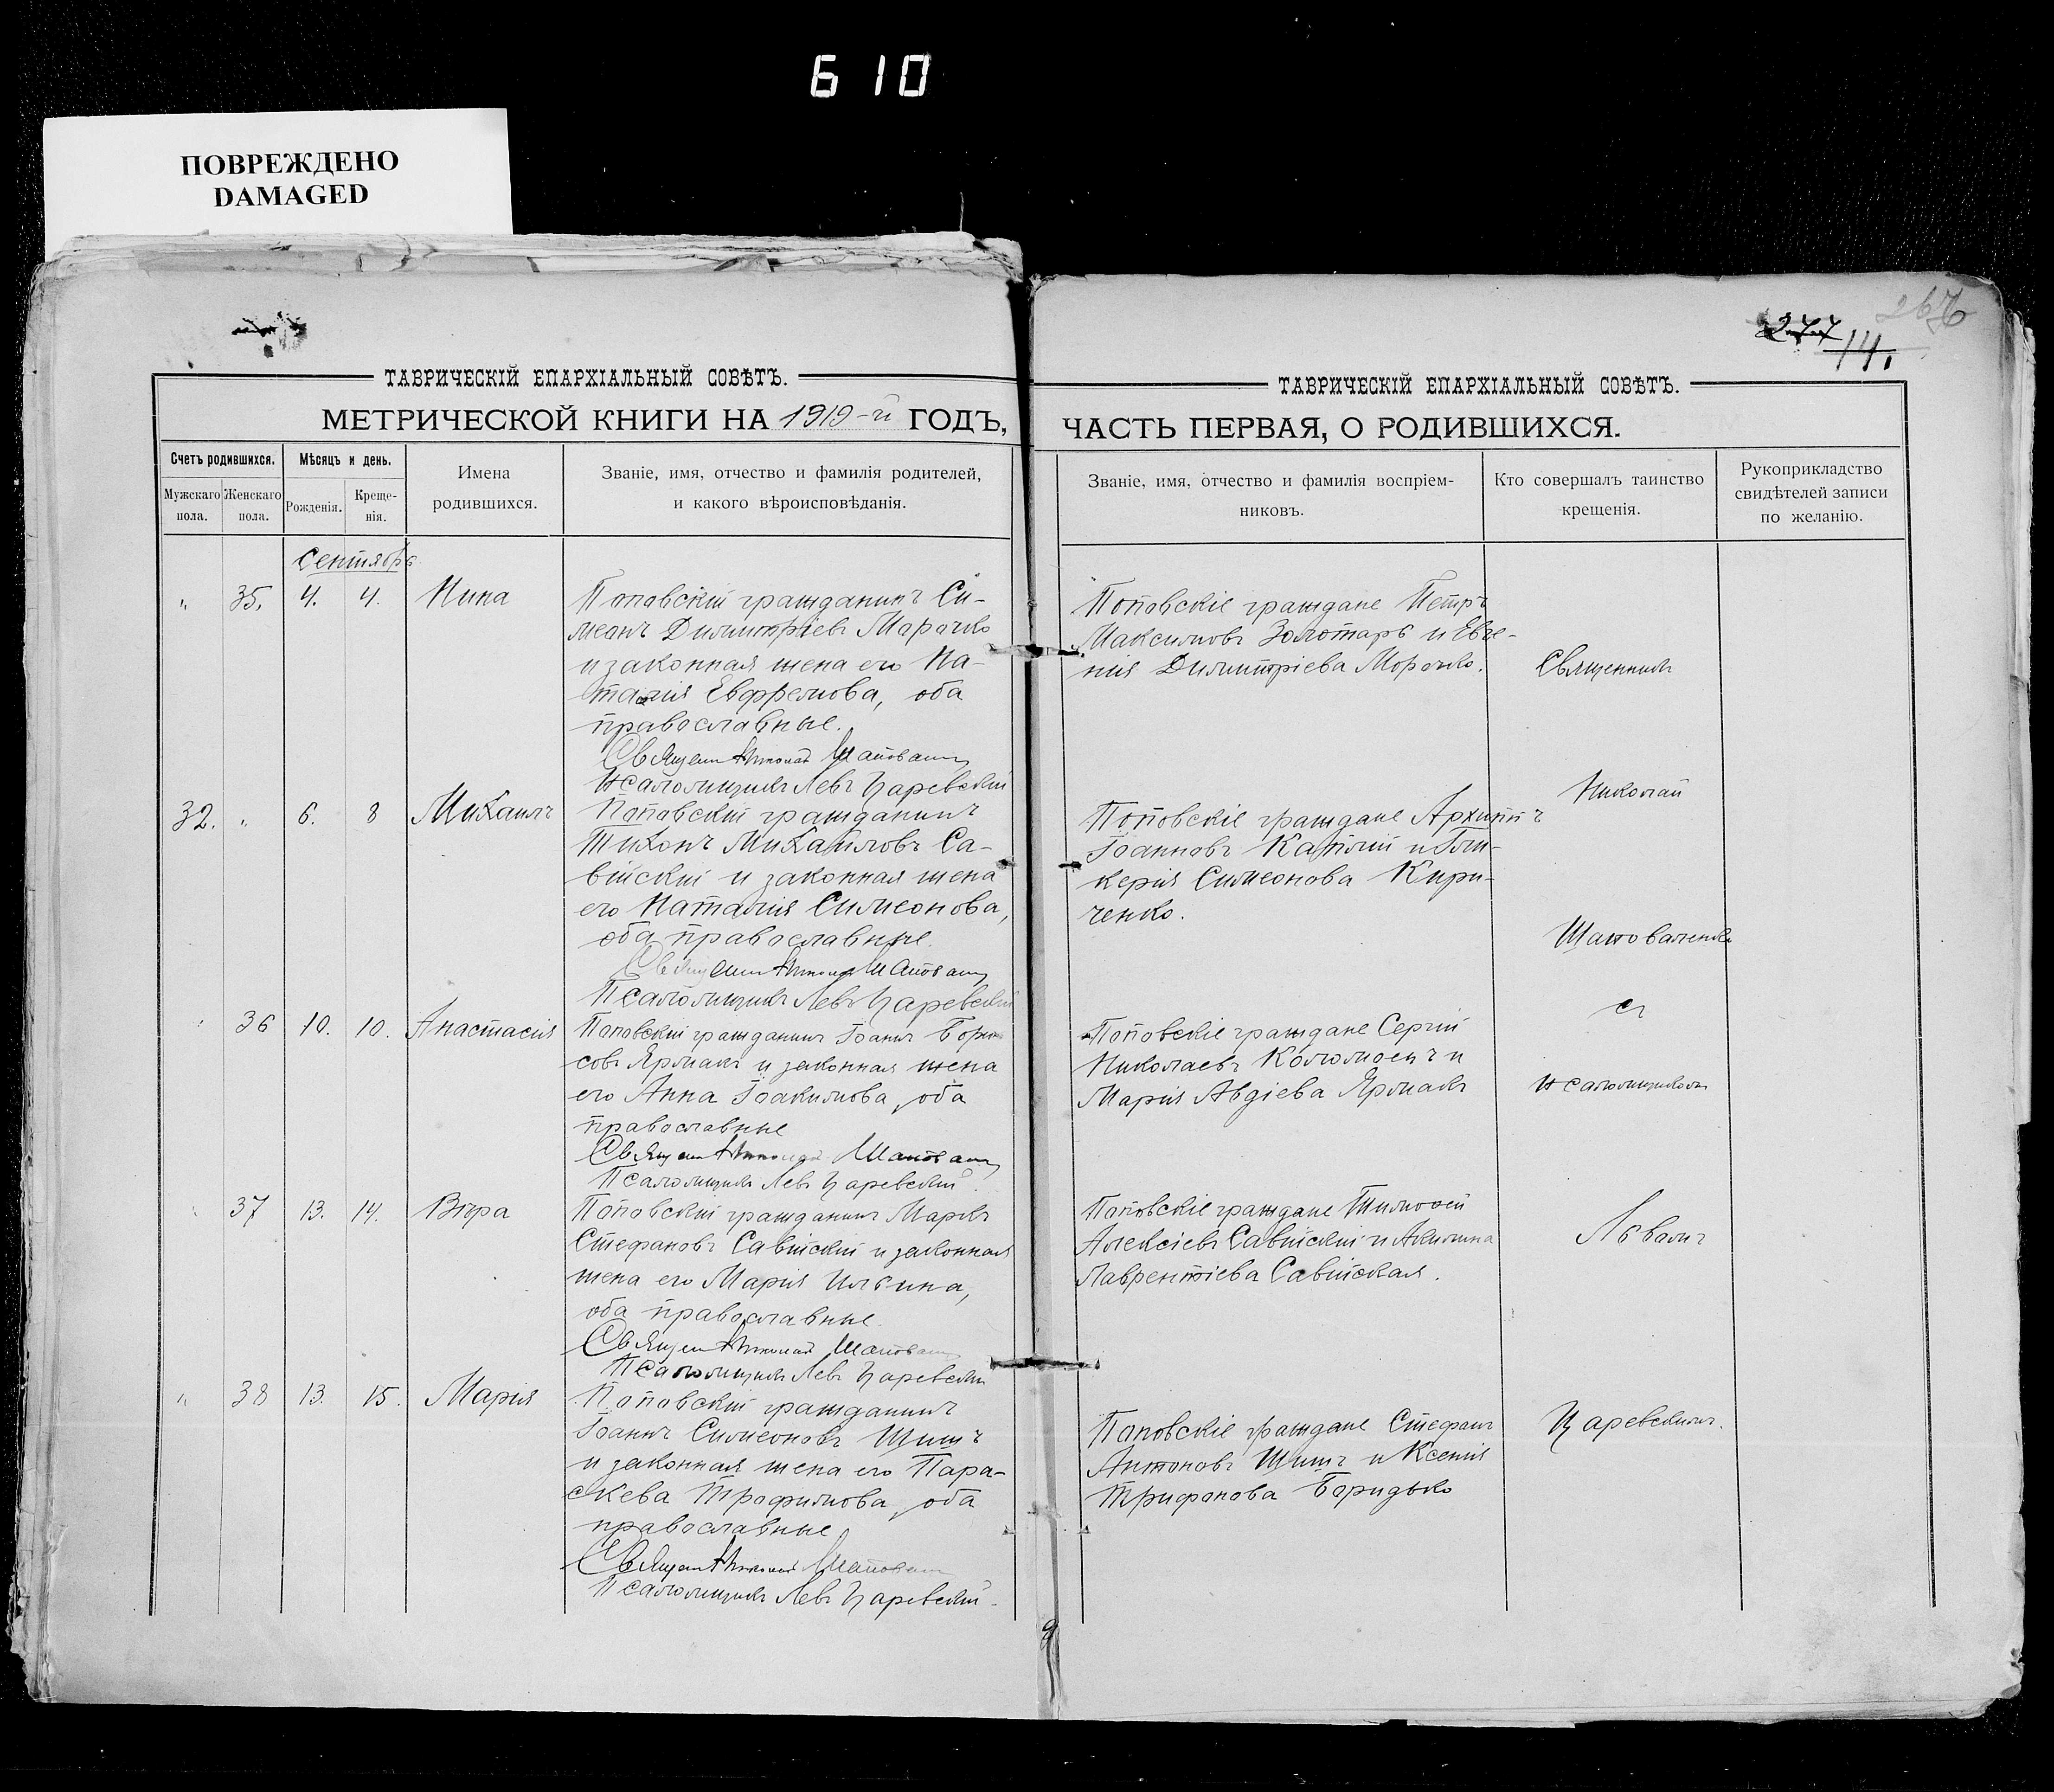 610
ПОВРЕЖДЕНО
DAMAGED
267
277
14.
ТАВРИЧЕСКІЙ ЕПАРХІАЛЬНЫЙ СОВѢТЪ.
МЕТРИЧЕСКОЙ КНИГИ НА 1919-й ГОДЪ,
Счетъ родившихся.
Мѣсяцъ и день.
Имена
родившихся.
Званіе, имя, отчество и фамилія родителей,
и какого вѣроисповѣданія.
Мужскаго
пола.
Женскаго
пола.
Рожденія.
Креще-
нія.
Сентябрь
" 35. 4. 4. Нина
Поповскій гражданинъ Си-
меонъ Димитріевъ Марочко
и законная жена его На-
талія Евфремова, оба
православные.
Священ Николай Шаповал
Псаломщикъ Левъ Царевскій
32. " 6. 8 Михаилъ
Поповскій гражданинъ
Тихонъ Михаиловъ Са-
війскій и законная жена
его Наталія Симеонова,
оба православные.
Священ Николай Шаповал
Псаломщикъ Левъ Царевскій
" 36 10. 10. Анастасія
Поповскій гражданинъ Іоаннъ Бори-
совъ Ярмакъ и законная жена
его Анна Іоакимова, оба
православные
Священ Николай Шаповал
Псаломщикъ Левъ Царевскій
" 37 13. 14. Вѣра
Поповскій гражданинъ Маркъ
Стефановъ Савійскій и законная
жена его Марія Ильина,
оба православные.
Священ Николай Шаповал
Псаломщикъ Левъ Царевскій
" 38 13. 15. Марія
Поповскій гражданинъ
Іоаннъ Симеоновъ Шишъ
и законная жена его Пара-
скева Трофимова, оба
православные
Священ Николай Шаповал
Псаломщикъ Левъ Царевскій
ТАВРИЧЕСКІЙ ЕПАРХІАЛЬНЫЙ СОВѢТЪ.
ЧАСТЬ ПЕРВАЯ, О РОДИВШИХСЯ.
Званіе, имя, отчество и фамилія воспріем-
никовъ.
Кто совершалъ таинство
крещенія.
Рукоприкладство
свидѣтелей записи
по желанію.
Поповскіе граждане Петръ
Максимовъ Золотарь и Евге-
нія Димитріева Морочко.
Поповскіе граждане Архиппъ
Іоанновъ и Гли-
керія Симеонова Кири-
ченко.
Поповскіе граждане Сергій
Николаевъ Коломоецъ и
Марія Авдіева Ярмакъ
Поповскіе граждане Тимоѳей
Алексіевъ Савійскій и Акилина
Лаврентіева Савійская.
Поповскіе граждане Стефанъ
Антоновъ Шишъ и Ксенія
Трифонова
Священникъ
Николай
Шаповаленко
съ
псаломщикомъ
Львомъ
Царевскимъ.